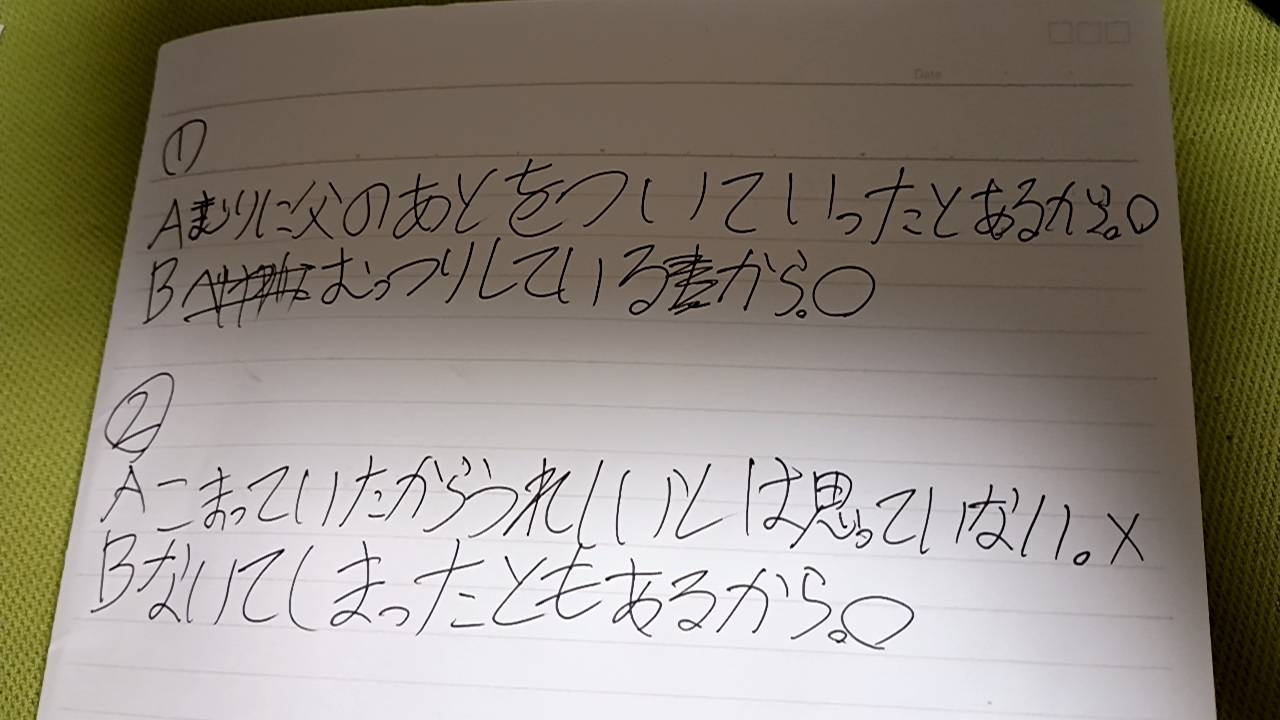 Date
①
Aまりに父のあとをついていったとあるから。○
B むっつりしているから。○
②
Aこまっていたからうれしいとは思っていない。×
Bないてしまったともあるから。○